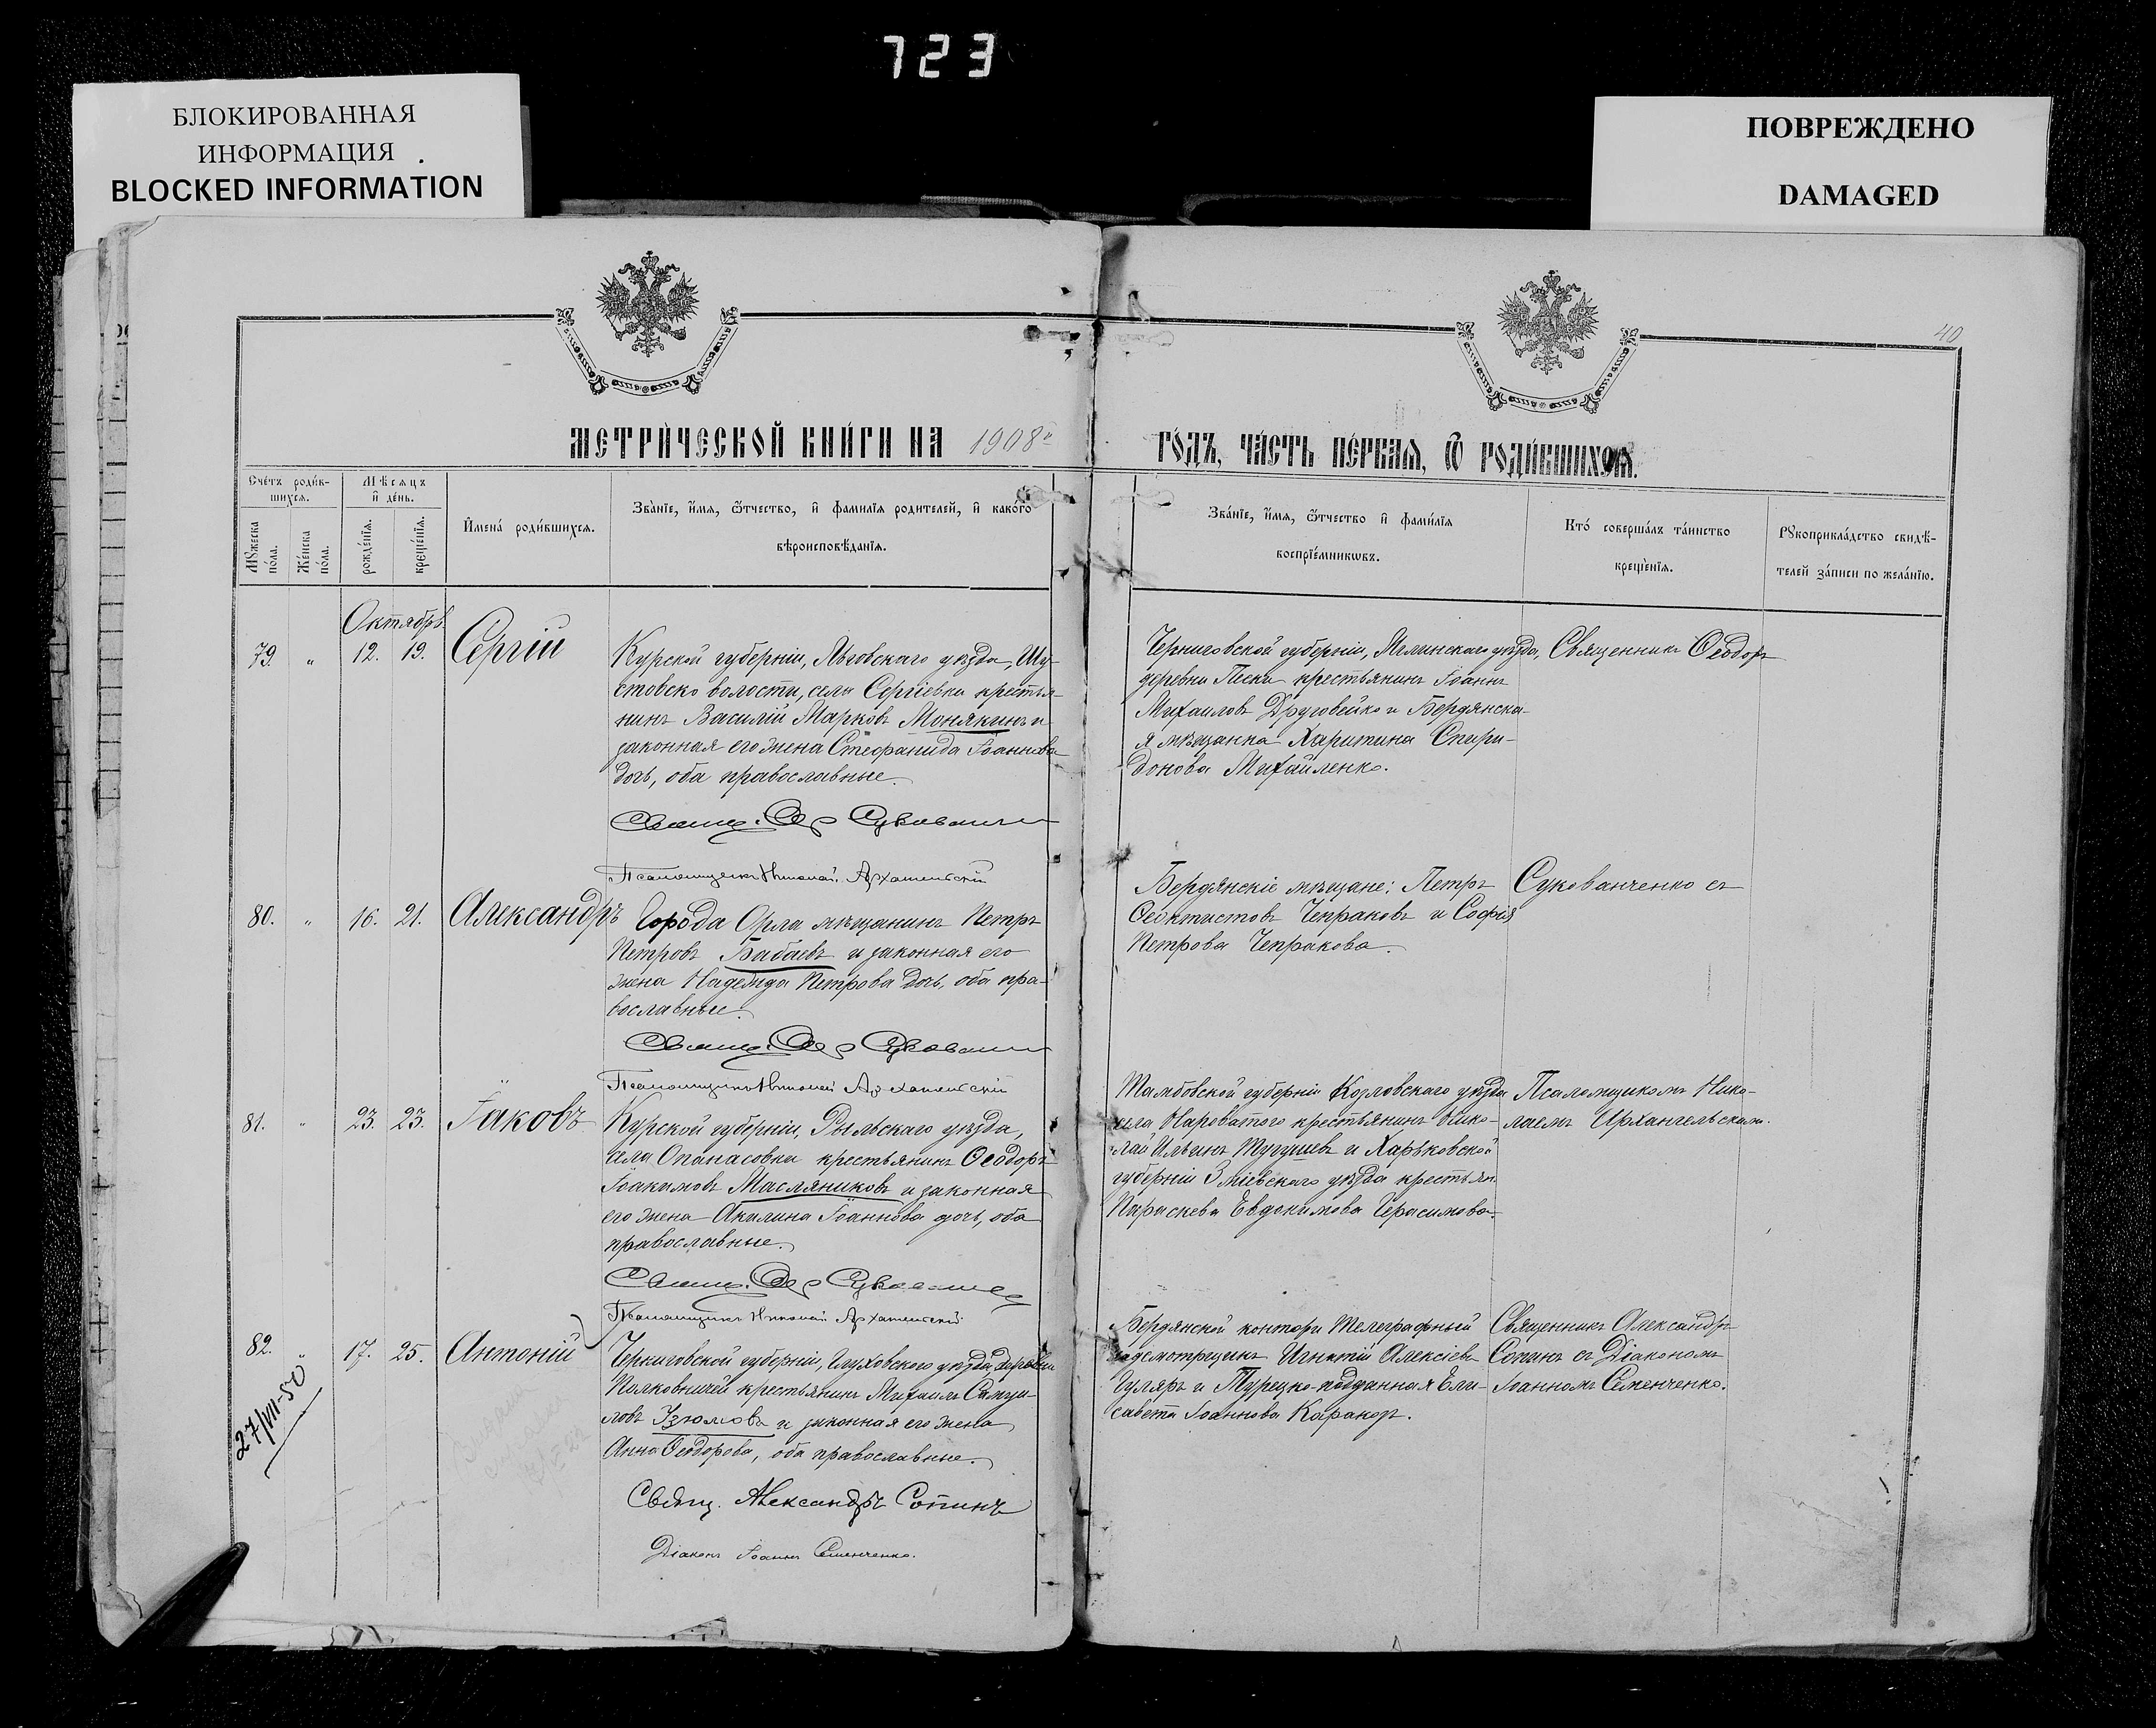 723
БЛОКИРОВАННАЯ
ИНФОРМАЦИЯ
BLOCKED INFORMATION
ПОВРЕЖДЕНО
DAMAGED
40
МЕТРИ́ЧЕСКОЙ КНИ́ГИ НА 1908й
ГО́ДЪ, ЧА́СТЬ ПЕ́РВАѦ, Ѿ РОДИ́ВШИХСѦ.
Сче́тъ роди́в-
шихсѧ.
Мѣ́сѧцъ
и҆ де́нь.
Мꙋ́жеска
по́ла.
Же́нска
по́ла.
рожде́нїѧ.
креще́нїѧ.
И҆мена̀ роди́вшихсѧ.
Зва́нїе, и҆́мѧ, ѿтчество, и҆ фамилїѧ родителей, и҆ како́гѡ
вѣроисповѣ́данїѧ.
Зва́нїе, и҆́мѧ, ѿтчество и҆ фами́лїѧ
воспрїе́мникѡвъ.
Кто́ соверша́лъ та́инство
креще́нїѧ.
Рꙋкоприкла́дство свидѣ́-
телей за́писи по жела́нїю.
Октябрь
79. " 12. 19. Сергій
Курской губерніи, Льговскаго уѣзда, Шу-
стовско волости, села Сергіевки крестья-
нинъ Василій Марковъ Монякинъ и
законная его жена Стефанида Іоаннова
дочь, оба православные.
Свящ. Ѳер Сукованч
Псаломщикъ Николай Архангельскій
Черниговской губерніи, Мглинскаго уѣзда,
деревни Пески крестьянинъ Іоаннъ
Михаиловъ Друговейко и Бердянска-
я мѣщанка Харитина Спири-
донова Михайленко.
Священникъ Ѳеодоръ
80. " 16. 21. Александръ
Города Орла мѣщанинъ Петръ
Петровъ Бабаевъ и законная его
жена Надежда Петрова дочь, оба пра-
вославные.
Свящ. Ѳер Сукованч
Псаломщикъ Николай Архангельскій
Бердянскіе мѣщане: Петръ
Ѳеоктистовъ Чепраковъ и Софія
Петрова Чепракова.
Сукованченко съ
81. " 23. 23. Іаковъ
Курской губерніи, Рыльскаго уѣзда,
села Опанасовки крестьянинъ Ѳеодоръ
Іоакимовъ Масляниковъ и законная
его жена Акилина Іоаннова дочь, оба
православные.
Свящ. Ѳер Сукованч
Псаломщикъ Николай Архангельскій
Тамбовской губерніи Козловскаго уѣзда
села Нароватого крестьянинъ Нико-
лай Ильинъ Тугушев и Харьковской
губерніи Зміевскаго уѣзда крестьян.
Параскева Евдокимова Герасимова.
Псаломщикомъ Нико-
лаемъ Архангельскимъ.
82. " 17. 25. Антоній
27/VII-50
Черниговской губерніи, Глуховского уѣзда, деревни
Полковничей крестьянинъ Михаилъ Самуи-
ловъ Изюмовъ и законная его жена
Анна Ѳеодорова, оба православные.
Свящ. Александръ Сопинъ
Діаконъ Іоаннъ Семенченко.
Бердянской конторы Телеграфный
надсмотрщикъ Игнатій Алексіевъ
Гуляръ и Турецко-подданная Ели-
савета Іоаннова Каракоз.
Священникъ Александръ
Сопинъ съ Діакономъ
Іоанномъ Семенченко.